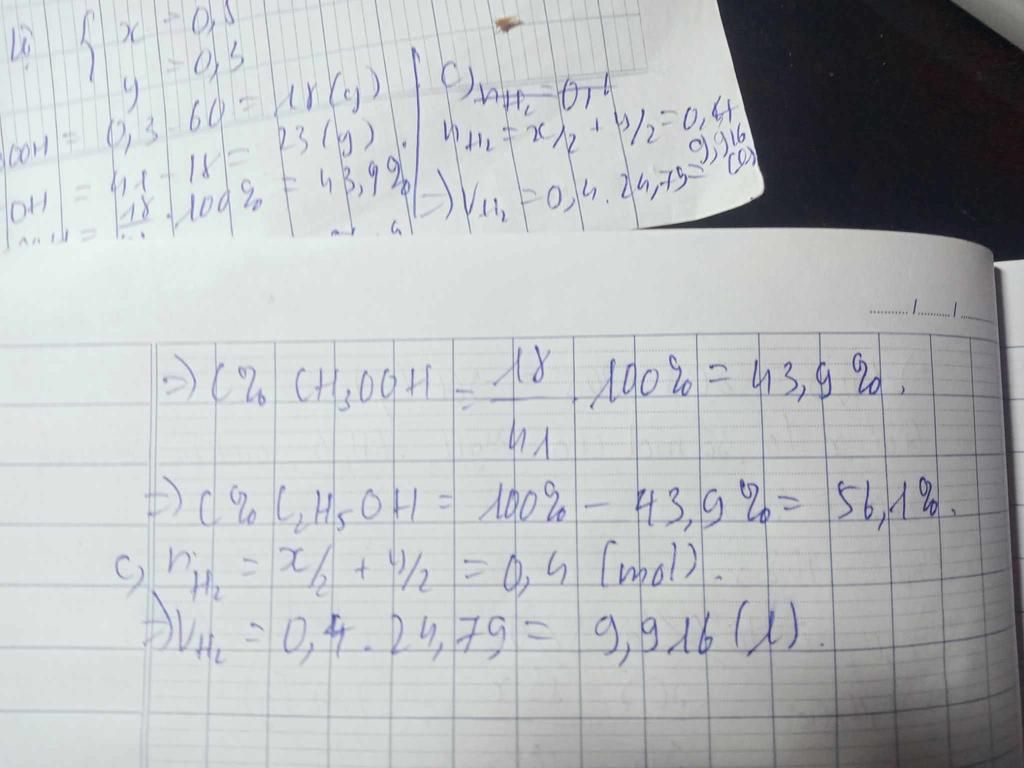 { x = 0,5
y = 0,3
COOH = 0,3 . 60 = 18 (g)
OH = 41 - 18 = 23 (g).
= 18 . 100% = 43,9%
c) nH₂ = 0,4
nH₂ = x/2 + y/2 = 0,4
=> VH₂ = 0,4 . 24,79 = 9,916 (l)
=> C% CH₃OOH = 18/41 . 100% = 43,9%.
=> C% C₂H₅OH = 100% - 43,9% = 56,1%.
c, nH₂ = x/2 + y/2 = 0,4 (mol).
=> VH₂ = 0,4 . 24,79 = 9,916 (l).